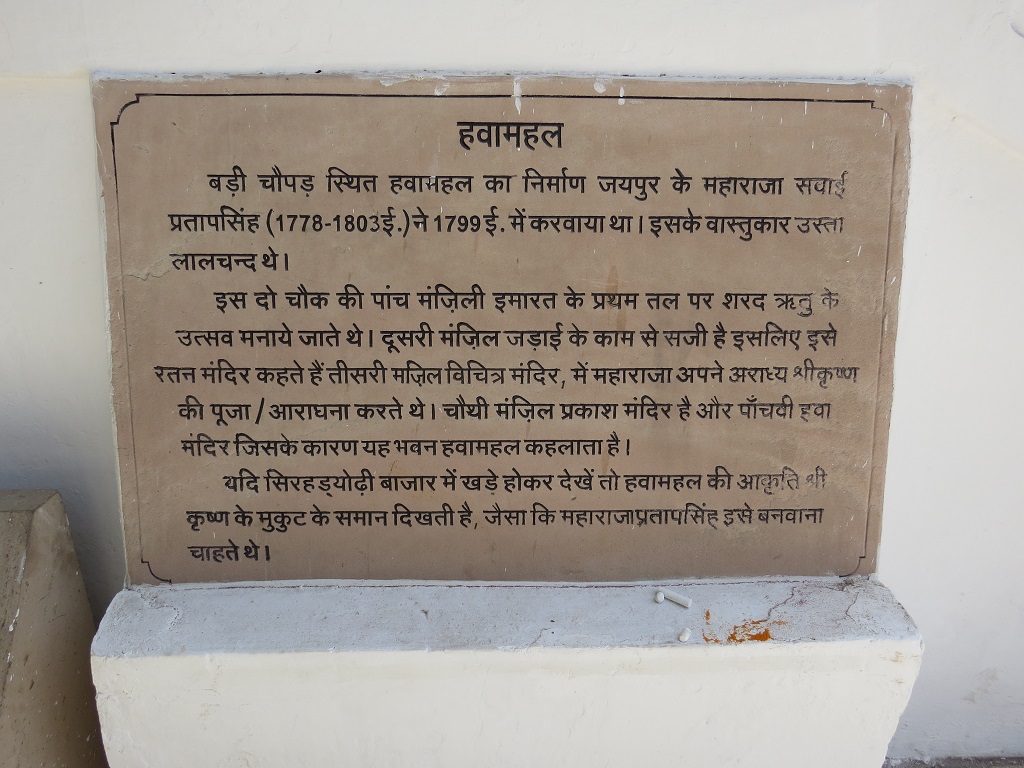 हवामहल
बड़ी चौपड़ स्थित हवामहल का निर्माण जयपुर के महाराजा सवाई
प्रतापसिंह (1778-1803ई.) ने 1799 ई. में करवाया था। इसके वास्तुकार उस्ता
लालचन्द थे।
इस दो चौक की पांच मंज़िली इमारत के प्रथम तल पर शरद ऋतु के
उत्सव मनाये जाते थे। दूसरी मंज़िल जड़ाई के काम से सजी है इसलिए इसे
रतन मंदिर कहते हैं तीसरी मज़िल विचित्र मंदिर, में महाराजा अपने अराध्य श्रीकृष्ण
की पूजा / आराघना करते थे। चौथी मंज़िल प्रकाश मंदिर है और पाँचवी हवा
मंदिर जिसके कारण यह भवन हवामहल कहलाता है।
यदि सिरहड्योढ़ी बाजार में खड़े होकर देखें तो हवामहल की आकृति श्री
कृष्ण के मुकुट के समान दिखती है, जैसा कि महाराजाप्रतापसिंह इसे बनवाना
चाहते थे।